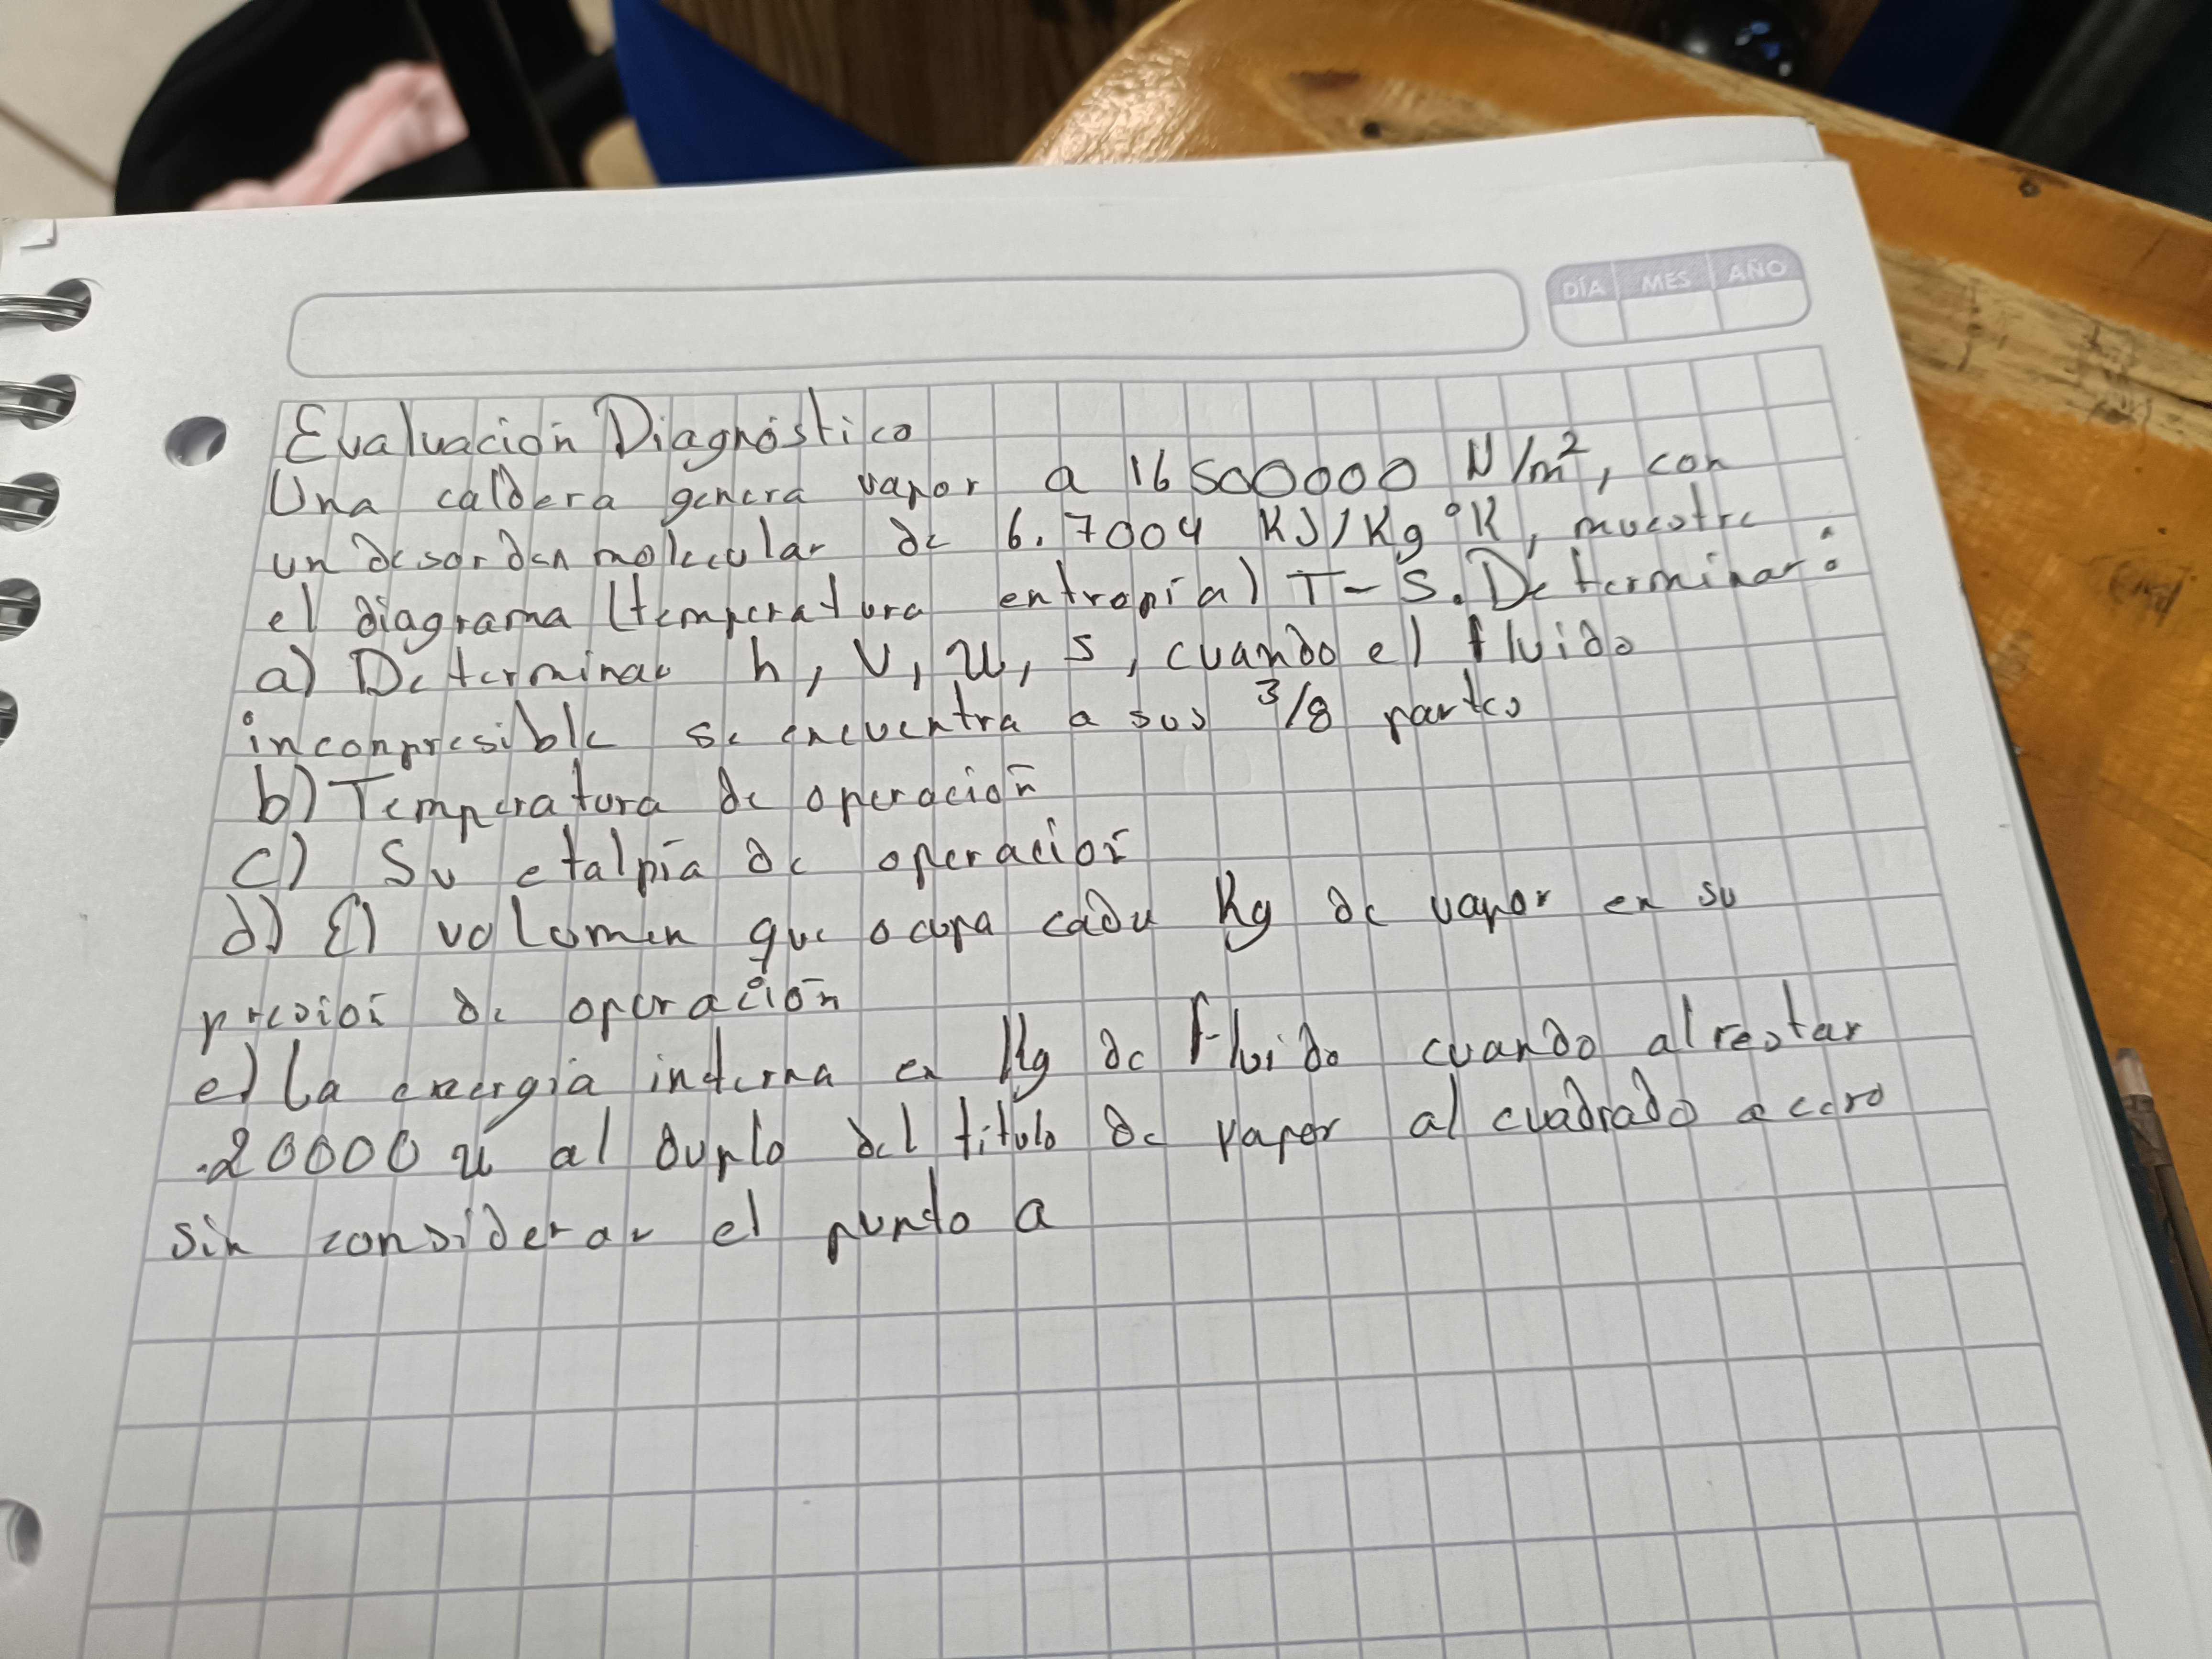 DÍA MES AÑO
Evaluación Diagnóstico
Una caldera genera vapor a 16500000 N/m², con
un desorden molecular de 6.7004 KJ/Kg °K, muestre
el diagrama (temperatura entropía) T-S. Determinar:
a) Determinar h, v, u, s, cuando el fluido
incompresible se encuentra a sus 3/8 partes
b) Temperatura de operación
c) Su etalpía de operación
d) El volumen que ocupa cada Kg de vapor en su
presión de operación
e) La energía interna en Kg de fluido cuando al restar
.20000 u al duplo del titulo de vapor al cuadrado a cero
sin considerar el punto a